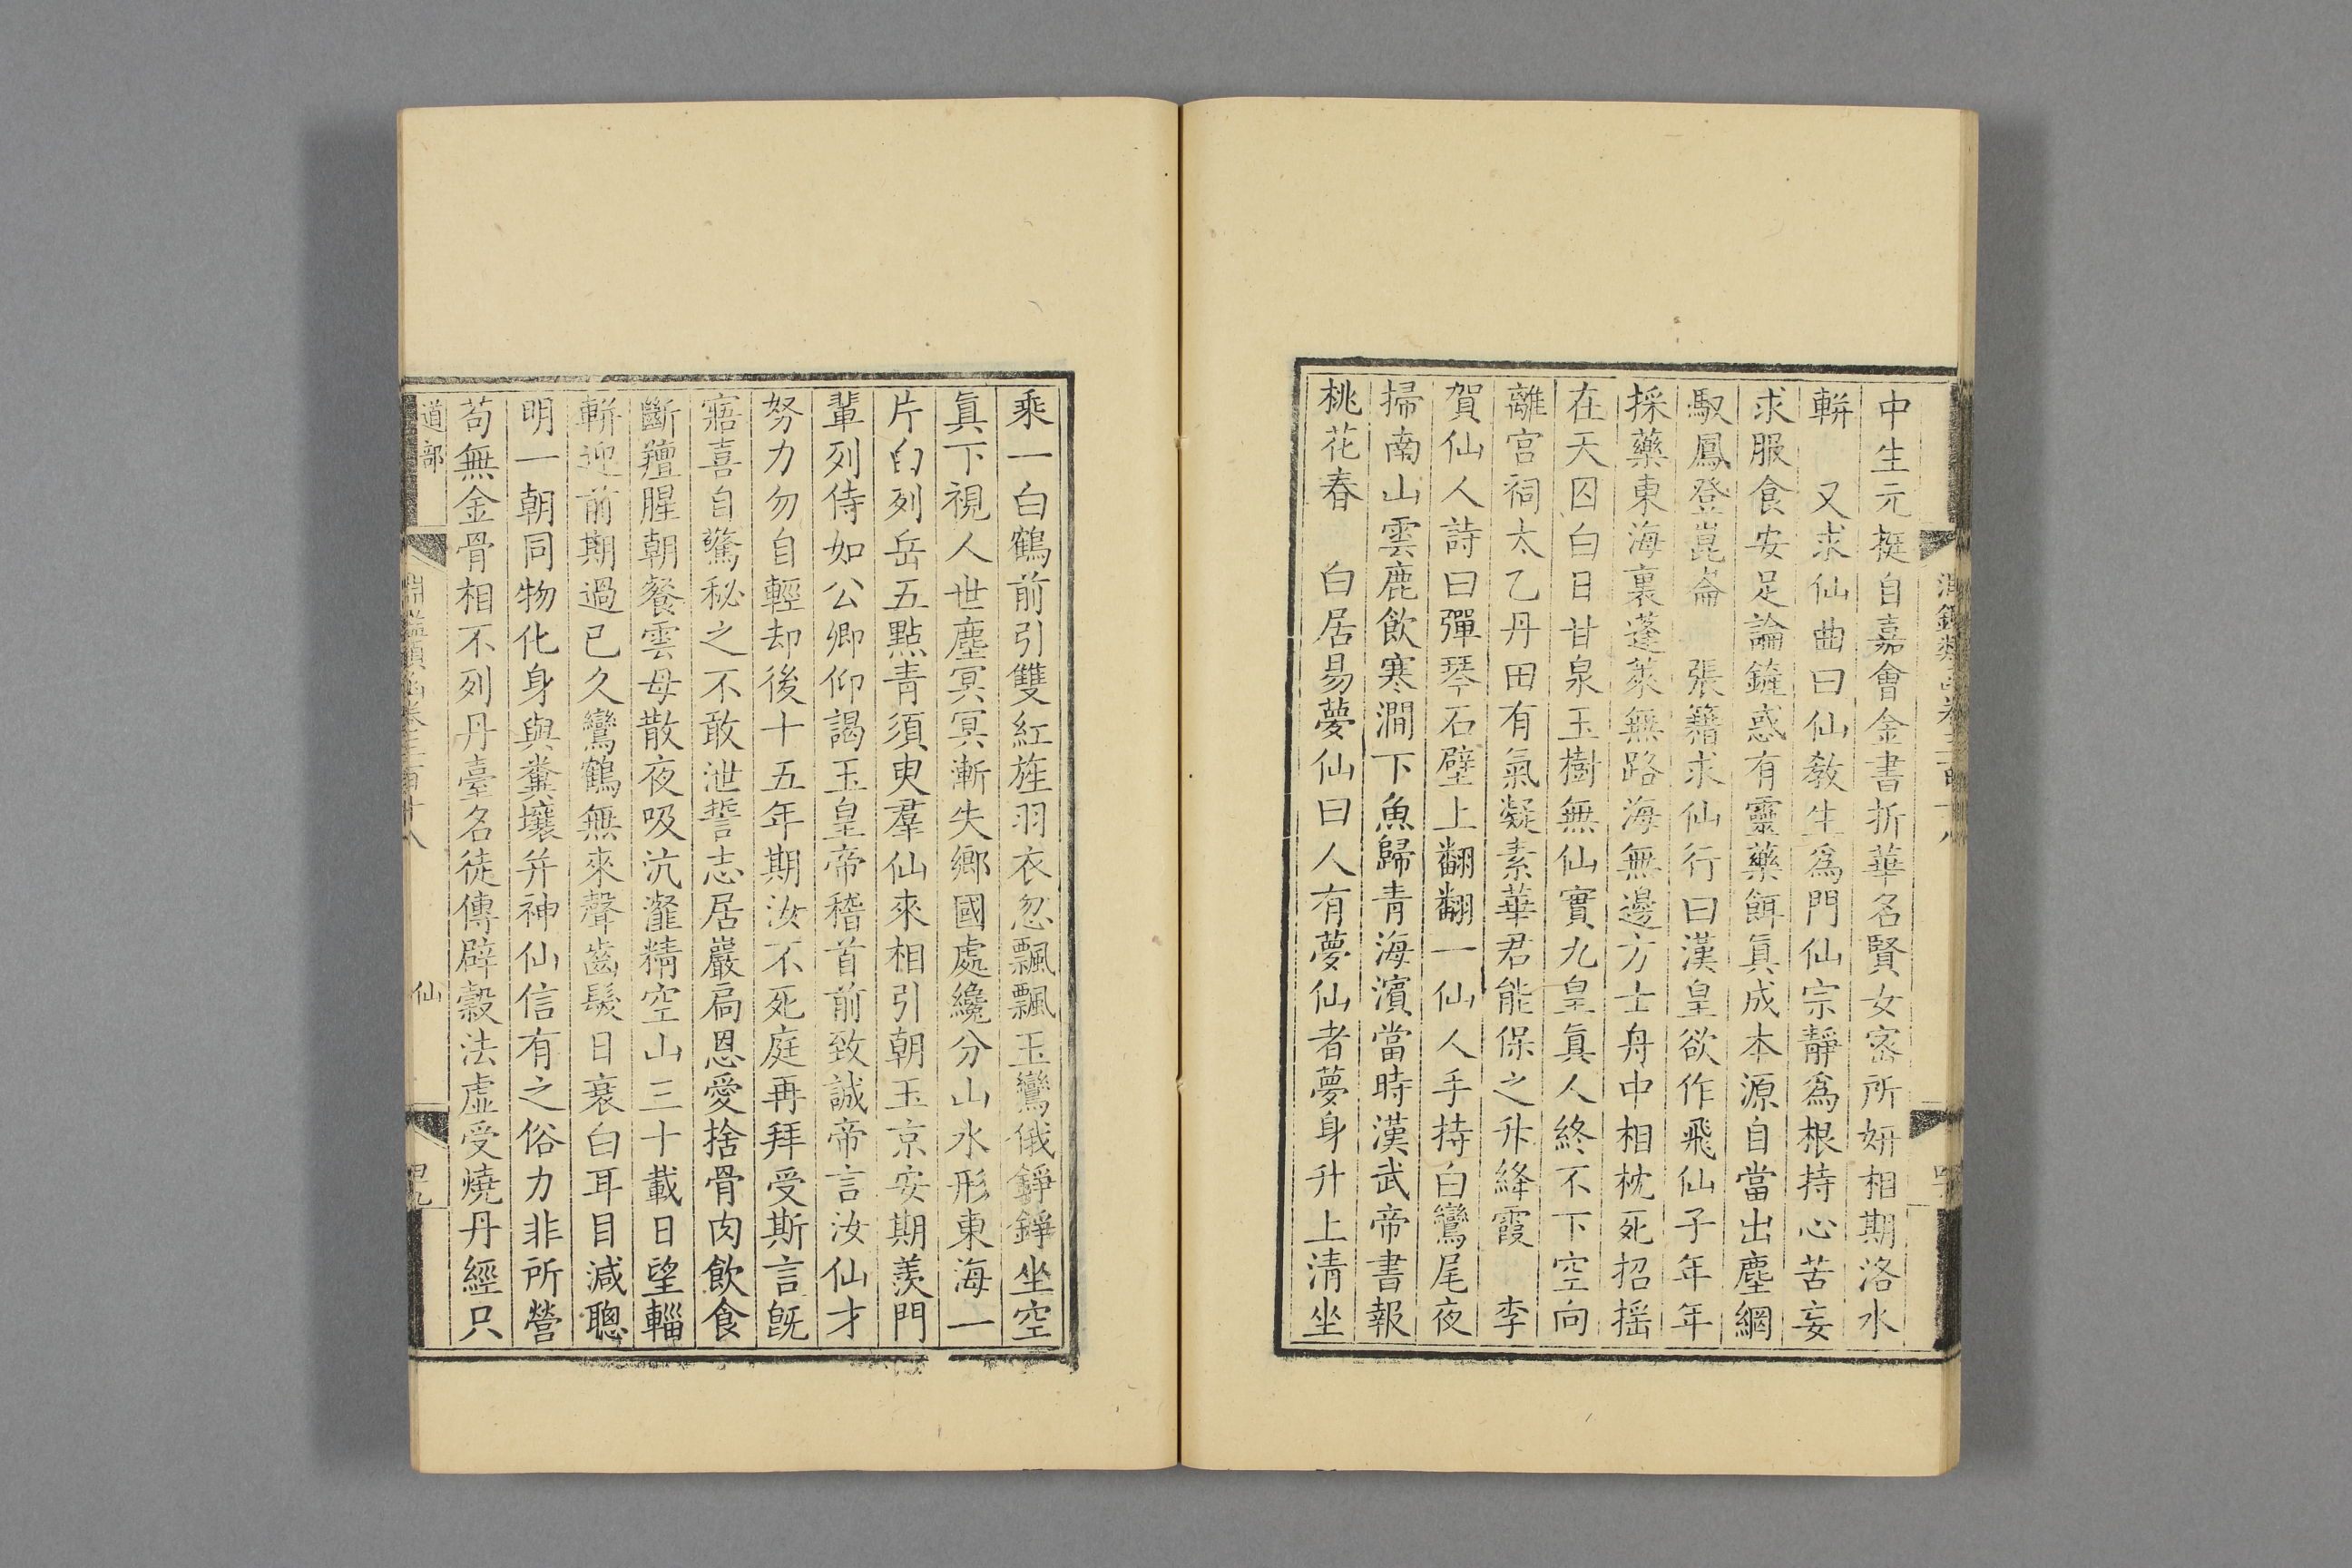 中生元挺自嘉會金書折華名賢女密所妍相期洛水
軿　又求仙曲曰仙教生爲門仙宗靜爲根持心苦妄
求服食安足論鏟惑有靈藥餌眞成本源自當出塵網
馭鳳登崑崙　張籍求仙行曰漢皇欲作飛仙子年年
採藥東海裏蓬萊無路海無邊方士舟中相枕死招揺
在天囚白日甘泉玉樹無仙實九皇眞人終不下空向
離宮祠太乙丹田有氣凝素華君能保之升絳霞　李
賀仙人詩曰彈琴石壁上翻翻一仙人手持白鸞尾夜
掃南山雲鹿飲寒澗下魚歸青海濱當時漢武帝書報
桃花春　白居易夢仙曰人有夢仙者夢身升上清坐
乘一白鶴前引雙紅旌羽衣忽飄飄玉鸞俄錚錚坐空
眞下視人世塵冥冥漸失鄉國處纔分山水形東海一
片白列岳五點青須臾羣仙來相引朝玉京安期羨門
輩列侍如公卿仰謁玉皇帝稽首前致誠帝言汝仙才
努力勿自輕却後十五年期汝不死庭再拜受斯言旣
寤喜自驚秘之不敢泄誓志居巖扃恩愛捨骨肉飲食
斷羶腥朝餐雲母散夜吸沆瀣精空山三十載日望輜
軿迎前期過已久鸞鶴無來聲齒髮日衰白耳目減聰
明一朝同物化身與糞壤并神仙信有之俗力非所營
苟無金骨相不列丹臺名徒傳辟穀法虛受燒丹經只
道部
仙